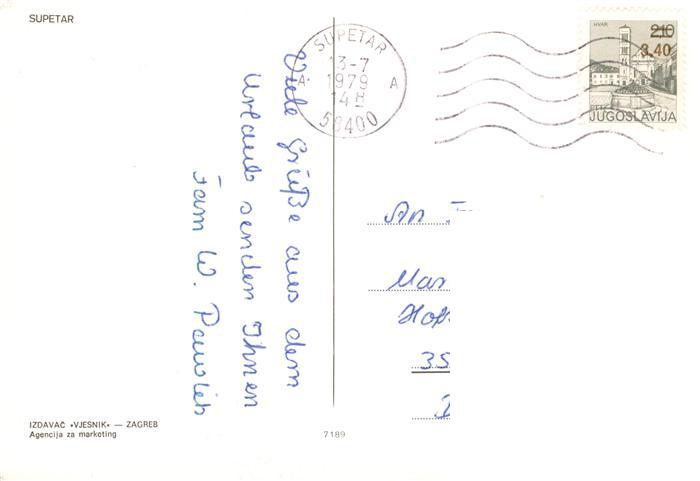 SUPETAR
SUPETAR
13-7
1979
14 H
A A
58400
HVAR
2,10
3.40
JUGOSLAVIJA
Viele Grüße aus dem
Urlaub senden Ihnen
Fam W. Pawlik
An
Mar
Hof
35
IZDAVAČ «VJESNIK» — ZAGREB
Agencija za marketing
7189